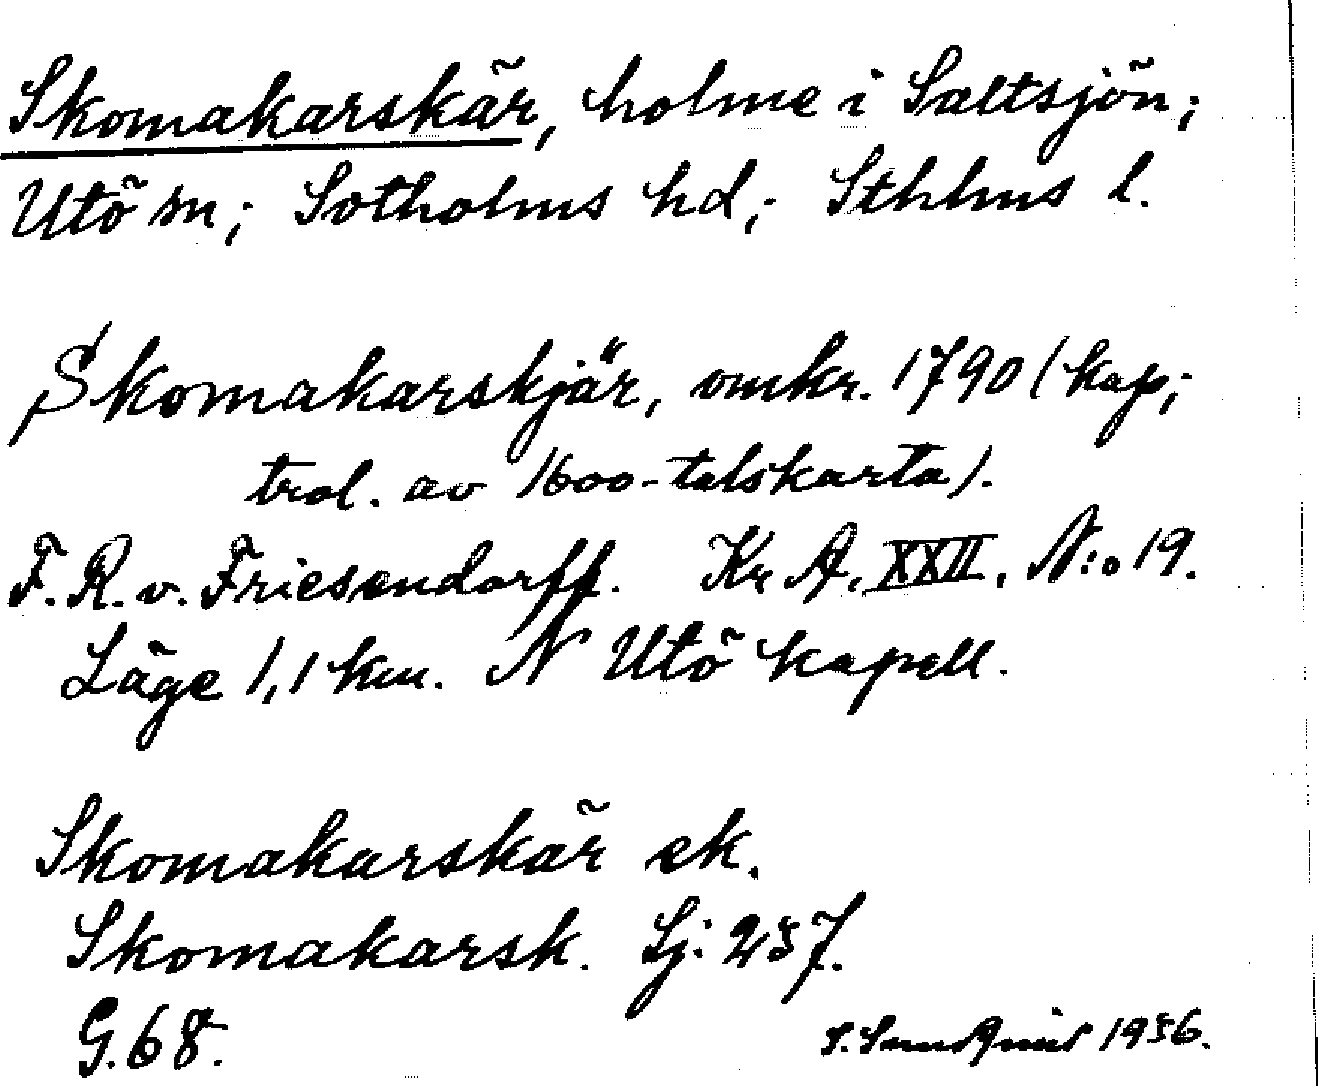 Skomakarskär, holme i Saltsjön;
Utö sn; Sotholms hd; Sthlms l.
Skomakarskjär, omkr. 1790 (kop;
trol. av 1600-talskarta).
F. R. v. Friesendorff. Kr A. XXII, N:o 19.
Läge 1,1 km. N Utö kapell.
Skomakarskär ek.
Skomakarsk. Sj: 257.
G. 68.
S. 1936.